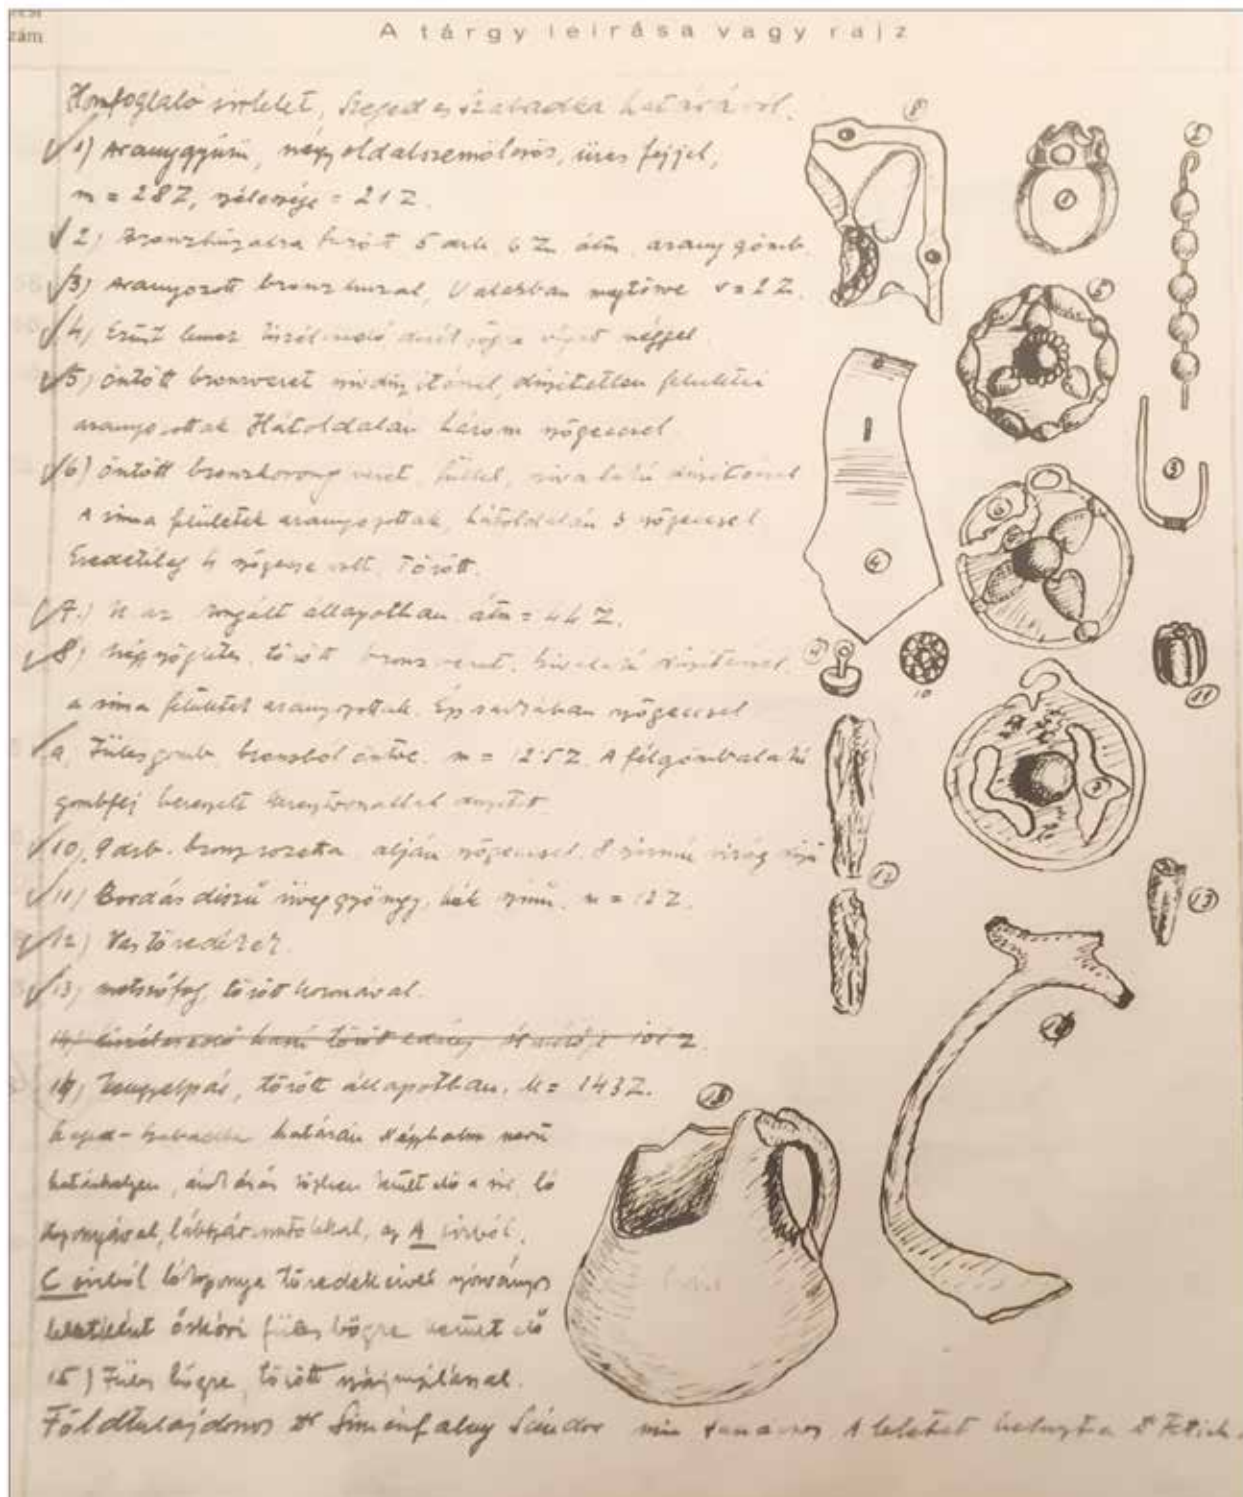 zám
A tárgy leírása vagy rajz
Honfoglaló sírlelet, Szeged és Szabadka határából.
1) Aranygyűrű, négy oldalszemölcsös, üres fejjel,
m = 28 Z, szélessége = 21 Z.
2) Bronzhúzalra fűzött 5 drb. 6 Z átm. arany gömb.
3) Aranyozott bronzhuzal, U alakban v = 2 Z.
4) Ezüst lemez
5) öntött bronzveret díszítetlen felületei
aranyozottak Hátoldalán három szögeccsel
6) öntött bronzkorong veret, füllel,
A sima felületek aranyozottak, hátoldalán 3 szögeccsel
Eredetileg 4 szögecse volt. Törött.
7.) U. az. rongált állapotban átm = 44 Z.
8) Négyszögletes, törött bronzveret,
a sima felületek aranyozottak. Ép sarkában szögeccsel
Fülesgomb bronzból öntve. m = 12·5 Z. A félgömbalakú
gombfej bevésett keresztvonallal díszített.
10) 9 drb. bronz rozetta, alján szögeccsel, 8 szirmú virág
11) Bordás díszű üveggyöngy, kék színű. m = 12 Z.
12) Vastöredékek.
13) metszőfog, törött koronával.
14) törött edény
14) Kengyelpár, törött állapotban. M = 143 Z.
Szeged-Szabadka határán nevű
határhelyen, került elő a sír, ló
az A sírból.
C sírból lókoponya töredékeivel szórványos
leletként őskori füles bögre került elő
15) Füles bögre, törött szájnyílással.
Földtulajdonos Dr Siménfalvy Sándor min tanácsos A leletet
1
2
3
4
5
6
7
8
9
10
11
12
13
14
15